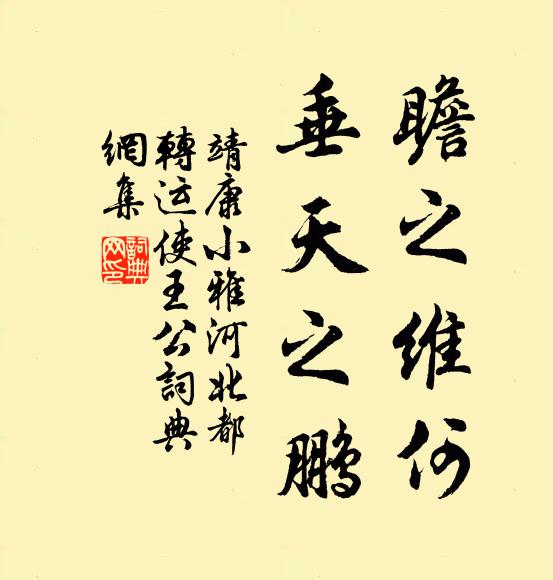 瞻之維何
垂天之鵬
靖康小雅河北都
轉运使王公詞典
網集
詞典
网印